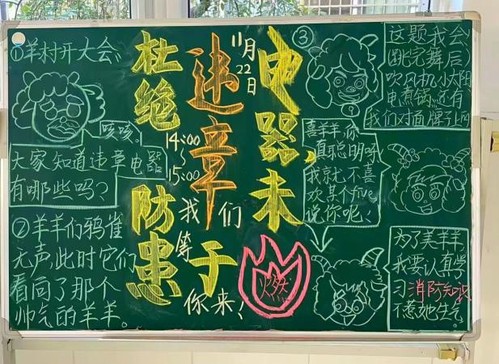 ①羊村开大会
咳咳。
大家知道违章电器
有哪些吗?
②羊羊们鸦雀
无声此时它们
看向了那个
帅气的羊羊。
杜绝
违章
电器
防患
于
未
燃
11月
22日
14:00
~
15:00
我们
等
你来
③
这题我会
围绕舞台
吹风机小太阳
电煮锅还有
我们对面牌子上的
喜羊羊你
真聪明呀
我就不喜
欢某个five
说你呢
为了美羊羊
我要认真学
习消防知识
不惹她生气